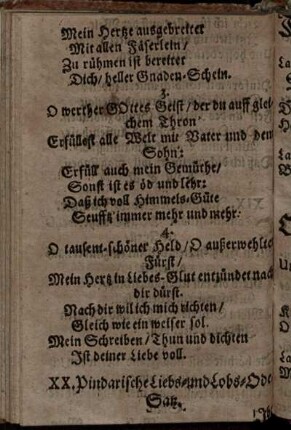 Mein Hertze ausgebreitet
Mit allen Fäserlein/
Zu rühmen ist bereitet
Dich/ heller Gnaden-Schein.
3.
O werther GOttes Geist/ der du auff glei-
chem Thron
Erfüllest alle Welt mit Vater und den
Sohn:
Erfüll auch mein Gemüthe/
Sonst ist es öd und lehr:
Daß ich voll Himmels-Güte
Seufftz immer mehr und mehr.
4.
O tausent-schöner Held/ O außerwehlte
Fürst/
Mein Hertz in Liebes-Glut entzündet nach
dir dürst.
Nach dir wil ich mich richten/
Gleich wie ein weiser sol.
Mein Schreiben/ Thun und dichten
Ist deiner Liebe voll.
XX. Pindarische Liebs- und Lobs-Ode
Satz.